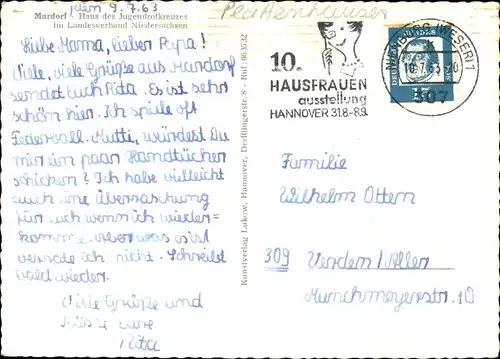 den 9.7.63
Mardorf - Haus des Jugendrotkreuzes
im Landesverband Niedersachsen
Liebe Mama, lieber Papa!
Viele, viele Grüße aus Mardorf
sendet euch Rita. Es ist sehr
schön hier. Ich spiele oft
Federball. Mutti, würdest Du
mir ein paar Handtücher
schicken? Ich habe vielleicht
auch eine Überraschung
für euch wenn ich wieder=
komme. Aber was es ist
verrate ich nicht. Schreibt
bald wieder.
Viele Grüße und
Küsse eure
Rita
Kunstverlag Lukow, Hannover, Derfflingerstr. 8 - Ruf: 663532
Plattenhauser
10.
HAUSFRAUEN
ausstellung
HANNOVER 31.8.-8.9.
NIENBURG (WESER) 1
10.7.63-20
307
15
Familie
Wilhelm Ottern
309 Verden/Aller
Munchmeyerstr. 10